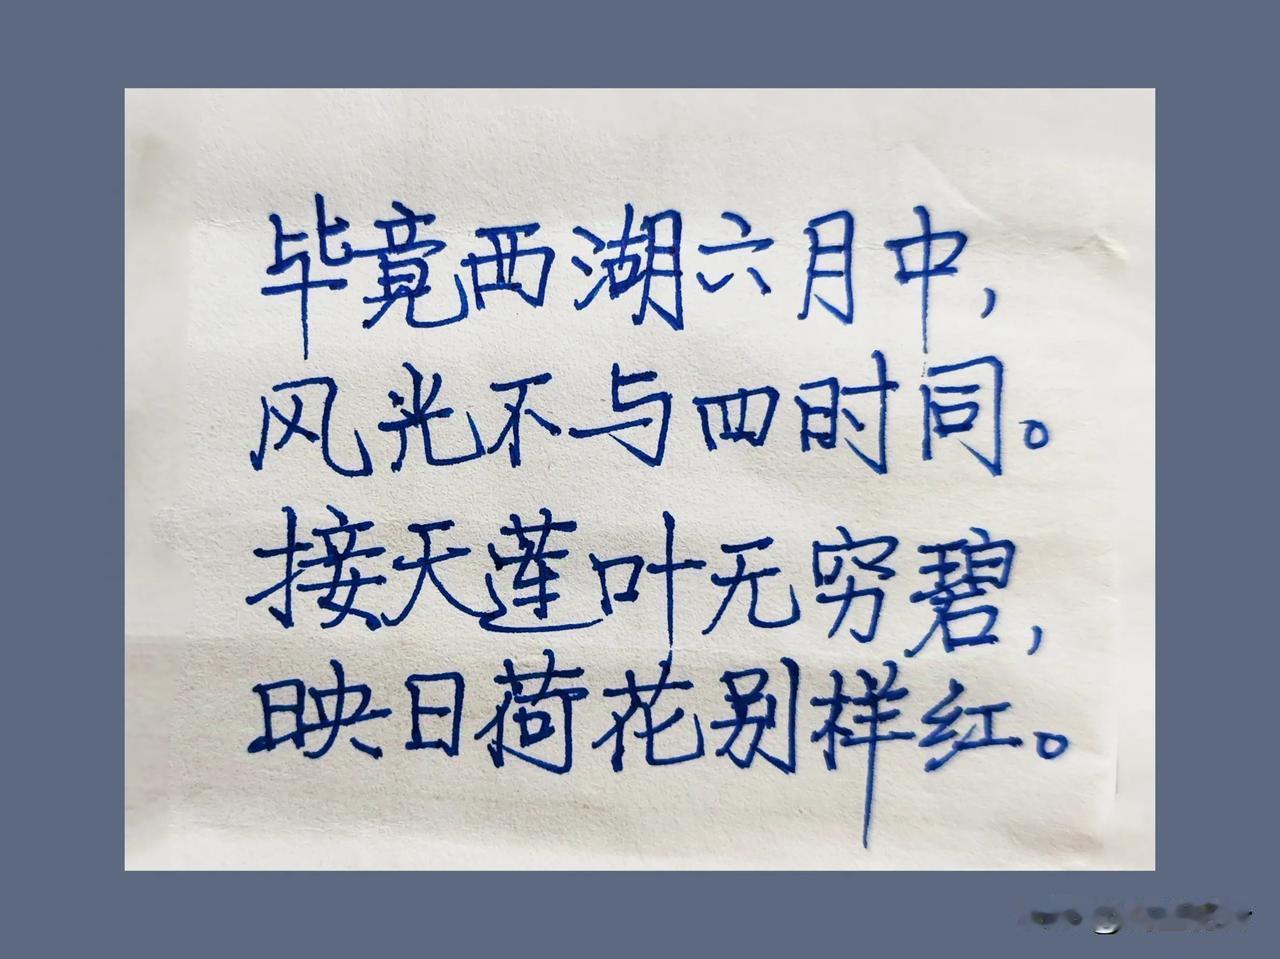 毕竟西湖六月中，
风光不与四时同。
接天莲叶无穷碧，
映日荷花别样红。